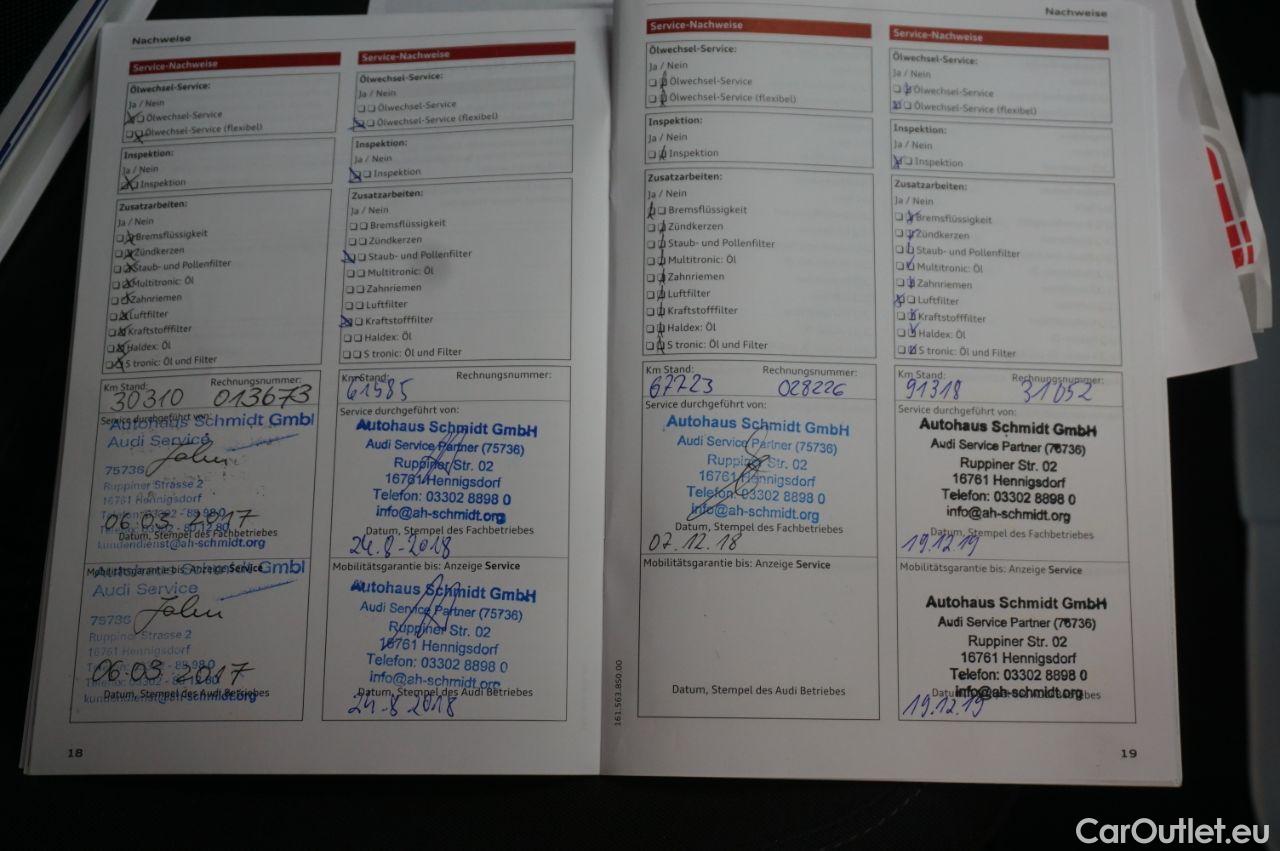 Nachweise
Service-Nachweise
Ölwechsel-Service:
Ja / Nein
Ölwechsel-Service
Ölwechsel-Service (flexibel)
Inspektion:
Ja / Nein
Inspektion
Zusatzarbeiten:
Ja / Nein
Bremsflüssigkeit
Zündkerzen
Staub- und Pollenfilter
Multitronic: Öl
Zahnriemen
Luftfilter
Kraftstofffilter
Haldex: Öl
S tronic: Öl und Filter
Km Stand: Rechnungsnummer:
30310 013673
Service durchgeführt von:
Autohaus Schmidt GmbH
Audi Service
75736
Ruppiner Strasse 2
16761 Hennigsdorf
06.03.2017
Datum, Stempel des Fachbetriebes
kundendienst@ah-schmidt.org
Mobilitätsgarantie bis: Anzeige Service
Autohaus Schmidt GmbH
Audi Service
75736
Ruppiner Strasse 2
06.03.2017
Datum, Stempel des Audi Betriebes
kundendienst@ah-schmidt.org
18
Service-Nachweise
Ölwechsel-Service:
Ja / Nein
Ölwechsel-Service
Ölwechsel-Service (flexibel)
Inspektion:
Ja / Nein
Inspektion
Zusatzarbeiten:
Ja / Nein
Bremsflüssigkeit
Zündkerzen
Staub- und Pollenfilter
Multitronic: Öl
Zahnriemen
Luftfilter
Kraftstofffilter
Haldex: Öl
S tronic: Öl und Filter
Km Stand: Rechnungsnummer:
61585
Service durchgeführt von:
Autohaus Schmidt GmbH
Audi Service Partner (75736)
Ruppiner Str. 02
16761 Hennigsdorf
Telefon: 03302 8898 0
info@ah-schmidt.org
Datum, Stempel des Fachbetriebes
24.8.2018
Mobilitätsgarantie bis: Anzeige Service
Autohaus Schmidt GmbH
Audi Service Partner (75736)
Ruppiner Str. 02
16761 Hennigsdorf
Telefon: 03302 8898 0
info@ah-schmidt.org
Datum, Stempel des Audi Betriebes
24.8.2018
Nachweise
Service-Nachweise
Ölwechsel-Service:
Ja / Nein
Ölwechsel-Service
Ölwechsel-Service (flexibel)
Inspektion:
Ja / Nein
Inspektion
Zusatzarbeiten:
Ja / Nein
Bremsflüssigkeit
Zündkerzen
Staub- und Pollenfilter
Multitronic: Öl
Zahnriemen
Luftfilter
Kraftstofffilter
Haldex: Öl
S tronic: Öl und Filter
Km Stand: Rechnungsnummer:
67723 028226
Service durchgeführt von:
Autohaus Schmidt GmbH
Audi Service Partner (75736)
Ruppiner Str. 02
16761 Hennigsdorf
Telefon: 03302 8898 0
info@ah-schmidt.org
Datum, Stempel des Fachbetriebes
07.12.18
Mobilitätsgarantie bis: Anzeige Service
Datum, Stempel des Audi Betriebes
161.563.850.00
Service-Nachweise
Ölwechsel-Service:
Ja / Nein
Ölwechsel-Service
Ölwechsel-Service (flexibel)
Inspektion:
Ja / Nein
Inspektion
Zusatzarbeiten:
Ja / Nein
Bremsflüssigkeit
Zündkerzen
Staub- und Pollenfilter
Multitronic: Öl
Zahnriemen
Luftfilter
Kraftstofffilter
Haldex: Öl
S tronic: Öl und Filter
Km Stand: Rechnungsnummer:
91318 31052
Service durchgeführt von:
Autohaus Schmidt GmbH
Audi Service Partner (75736)
Ruppiner Str. 02
16761 Hennigsdorf
Telefon: 03302 8898 0
info@ah-schmidt.org
Datum, Stempel des Fachbetriebes
19.12.19
Mobilitätsgarantie bis: Anzeige Service
Autohaus Schmidt GmbH
Audi Service Partner (75736)
Ruppiner Str. 02
16761 Hennigsdorf
Telefon: 03302 8898 0
info@ah-schmidt.org
19.12.19
19
CarOutlet.eu